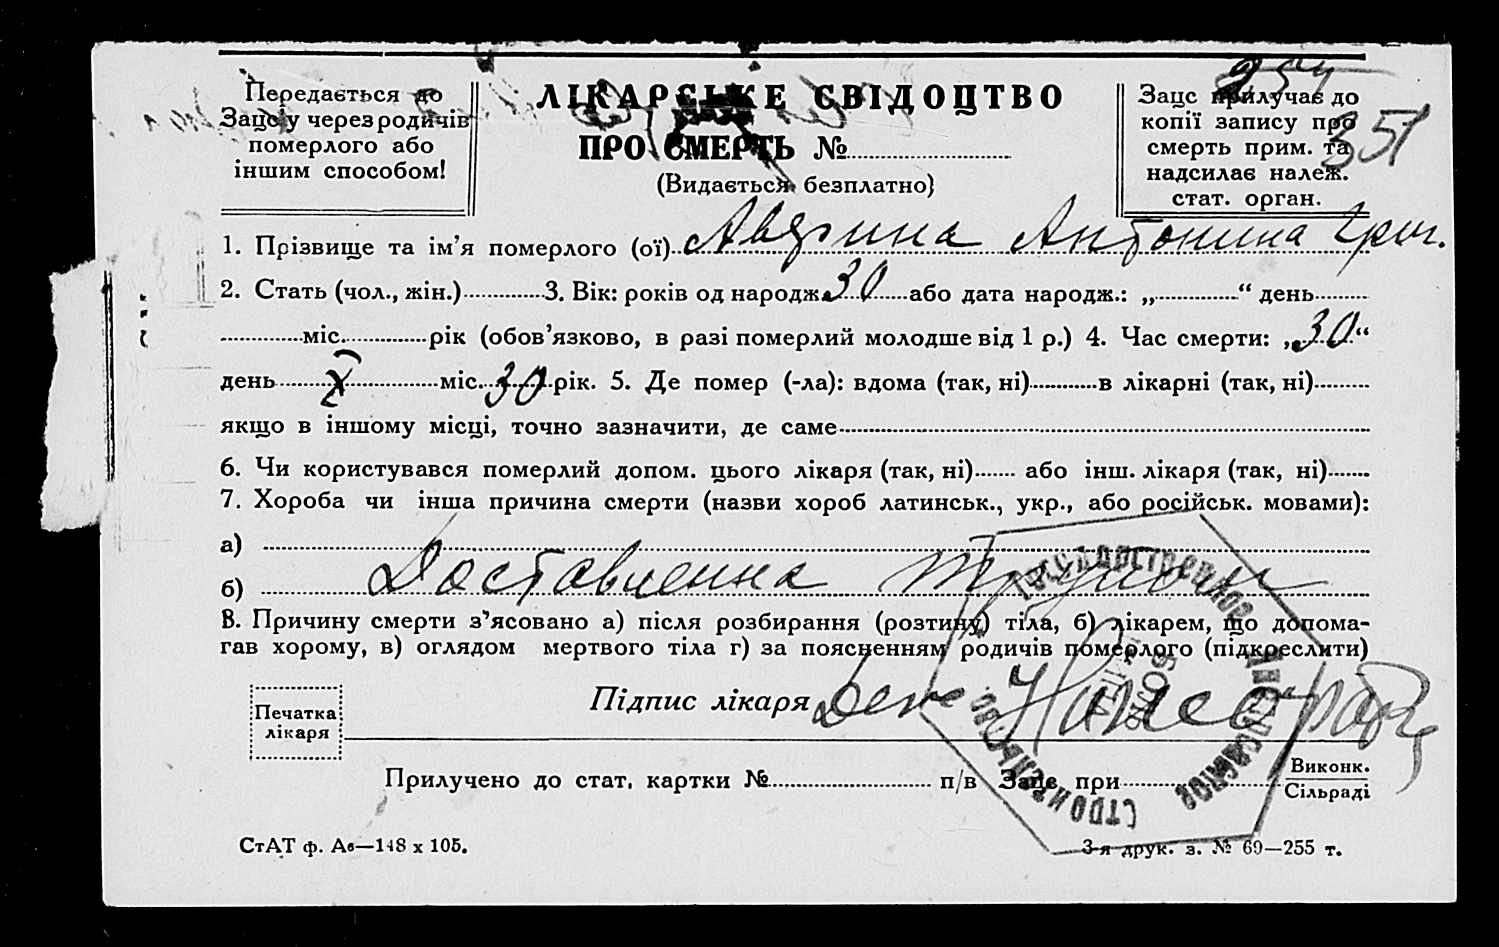 Передається до
Загсу через родичів
померлого або
іншим способом!
ЛІКАРСЬКЕ СВІДОЦТВО
ПРО СМЕРТЬ №
(Видається безплатно)
254
351
Загс прилучає до
копії запису про
смерть прим. та
надсилає належ.
стат. орган.
1. Прізвище та ім’я померлого (ої) Антонина Григ.
2. Стать (чол., жін.) 3. Вік: років од народж. 30 або дата народж.: „ “ день
міс. рік (обов’язково, в разі померлий молодше від 1 р.) 4. Час смерти: „30“
день X міс. 30 рік. 5. Де помер (-ла): вдома (так, ні) в лікарні (так, ні)
якщо в іншому місці, точно зазначити, де саме
6. Чи користувався померлий допом. цього лікаря (так, ні) або інш. лікаря (так, ні)
7. Хороба чи інша причина смерти (назви хороб латинськ., укр., або російськ. мовами):
а)
б) Доставленна трупом
8. Причину смерти з’ясовано а) після розбирання (розтину) тіла, б) лікарем, що допома-
гав хорому, в) оглядом мертвого тіла г) за поясненням родичів померлого (підкреслити)
Печатка
лікаря
Підпис лікаря
Прилучено до стат. картки № п/в Загс при Виконк.
Сільраді
СтАТ ф. А6—148 x 105.
3-я друк. з. № 69—255 т.